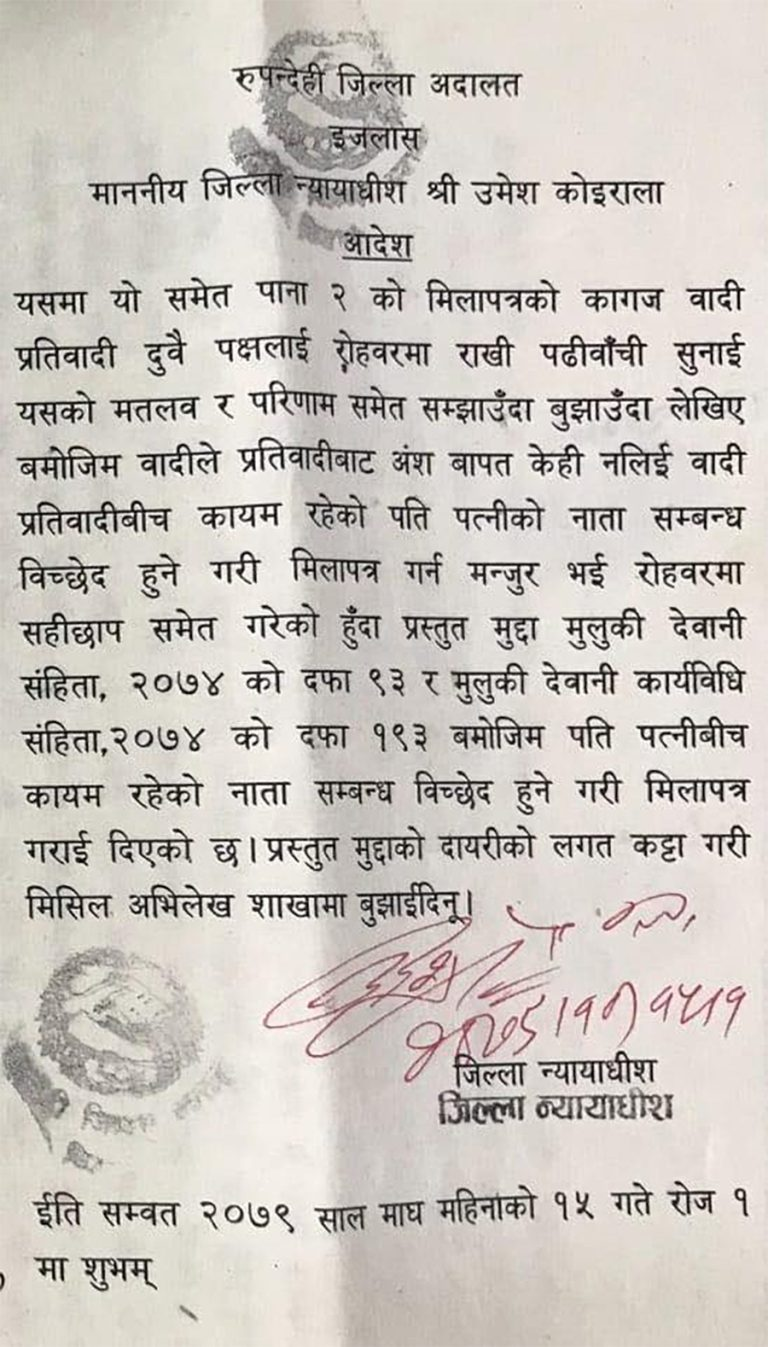 रुपन्देही जिल्ला अदालत
इजलास
माननीय जिल्ला न्यायाधीश श्री उमेश कोइराला
आदेश
यसमा यो समेत पाना २ को मिलापत्रको कागज वादी
प्रतिवादी दुवै पक्षलाई रोहवरमा राखी पढीवाँची सुनाई
यसको मतलव र परिणाम समेत सम्झाउँदा बुझाउँदा लेखिए
बमोजिम वादीले प्रतिवादीबाट अंश बापत केही नलिई वादी
प्रतिवादीबीच कायम रहेको पति पत्नीको नाता सम्बन्ध
विच्छेद हुने गरी मिलापत्र गर्न मन्जुर भई रोहवरमा
सहीछाप समेत गरेको हुँदा प्रस्तुत मुद्दा मुलुकी देवानी
संहिता, २०७४ को दफा ९३ र मुलुकी देवानी कार्यविधि
संहिता,२०७४ को दफा १९३ बमोजिम पति पत्नीबीच
कायम रहेको नाता सम्बन्ध विच्छेद हुने गरी मिलापत्र
गराई दिएको छ । प्रस्तुत मुद्दाको दायरीको लगत कट्टा गरी
मिसिल अभिलेख शाखामा बुझाईदिनू ।
जिल्ला न्यायाधीश
जिल्ला न्यायाधीश
ईति सम्वत २०७९ साल माघ महिनाको १५ गते रोज १
मा शुभम्